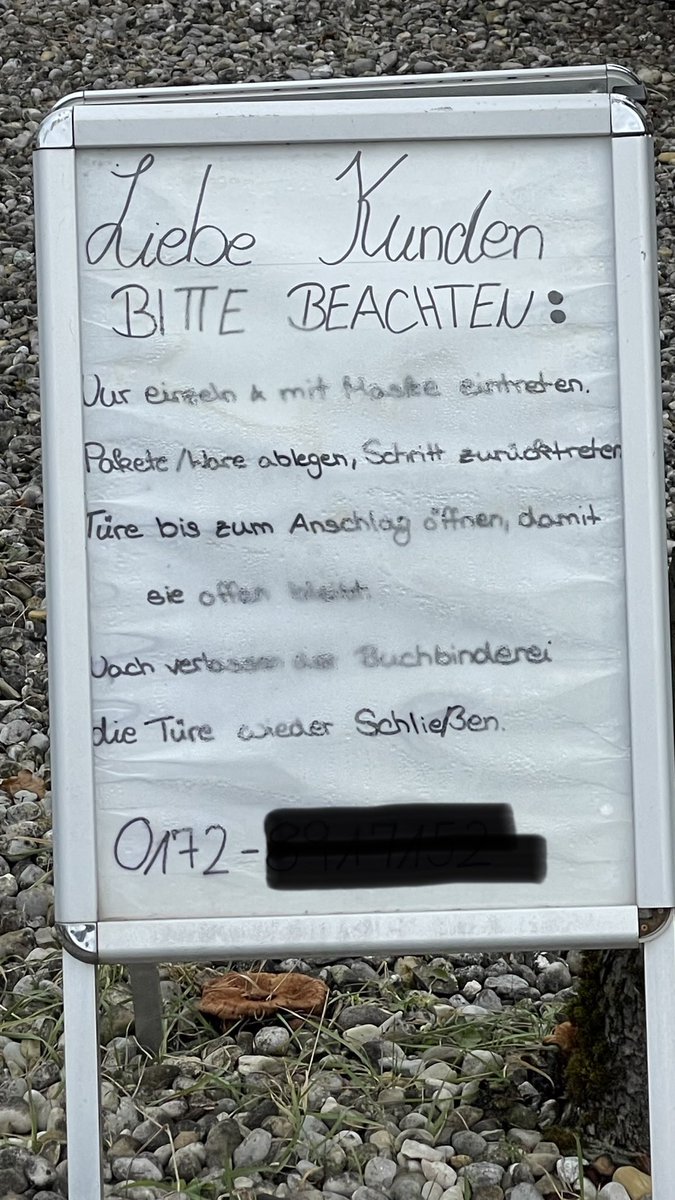 Liebe Kunden
BITTE BEACHTEN:
Nur einzeln & mit Maske eintreten.
Pakete/Ware ablegen, Schritt zurücktreten
Türe bis zum Anschlag öffnen, damit
sie offen bleibt
Nach verlassen der Buchbinderei
die Türe wieder Schließen.
0172-